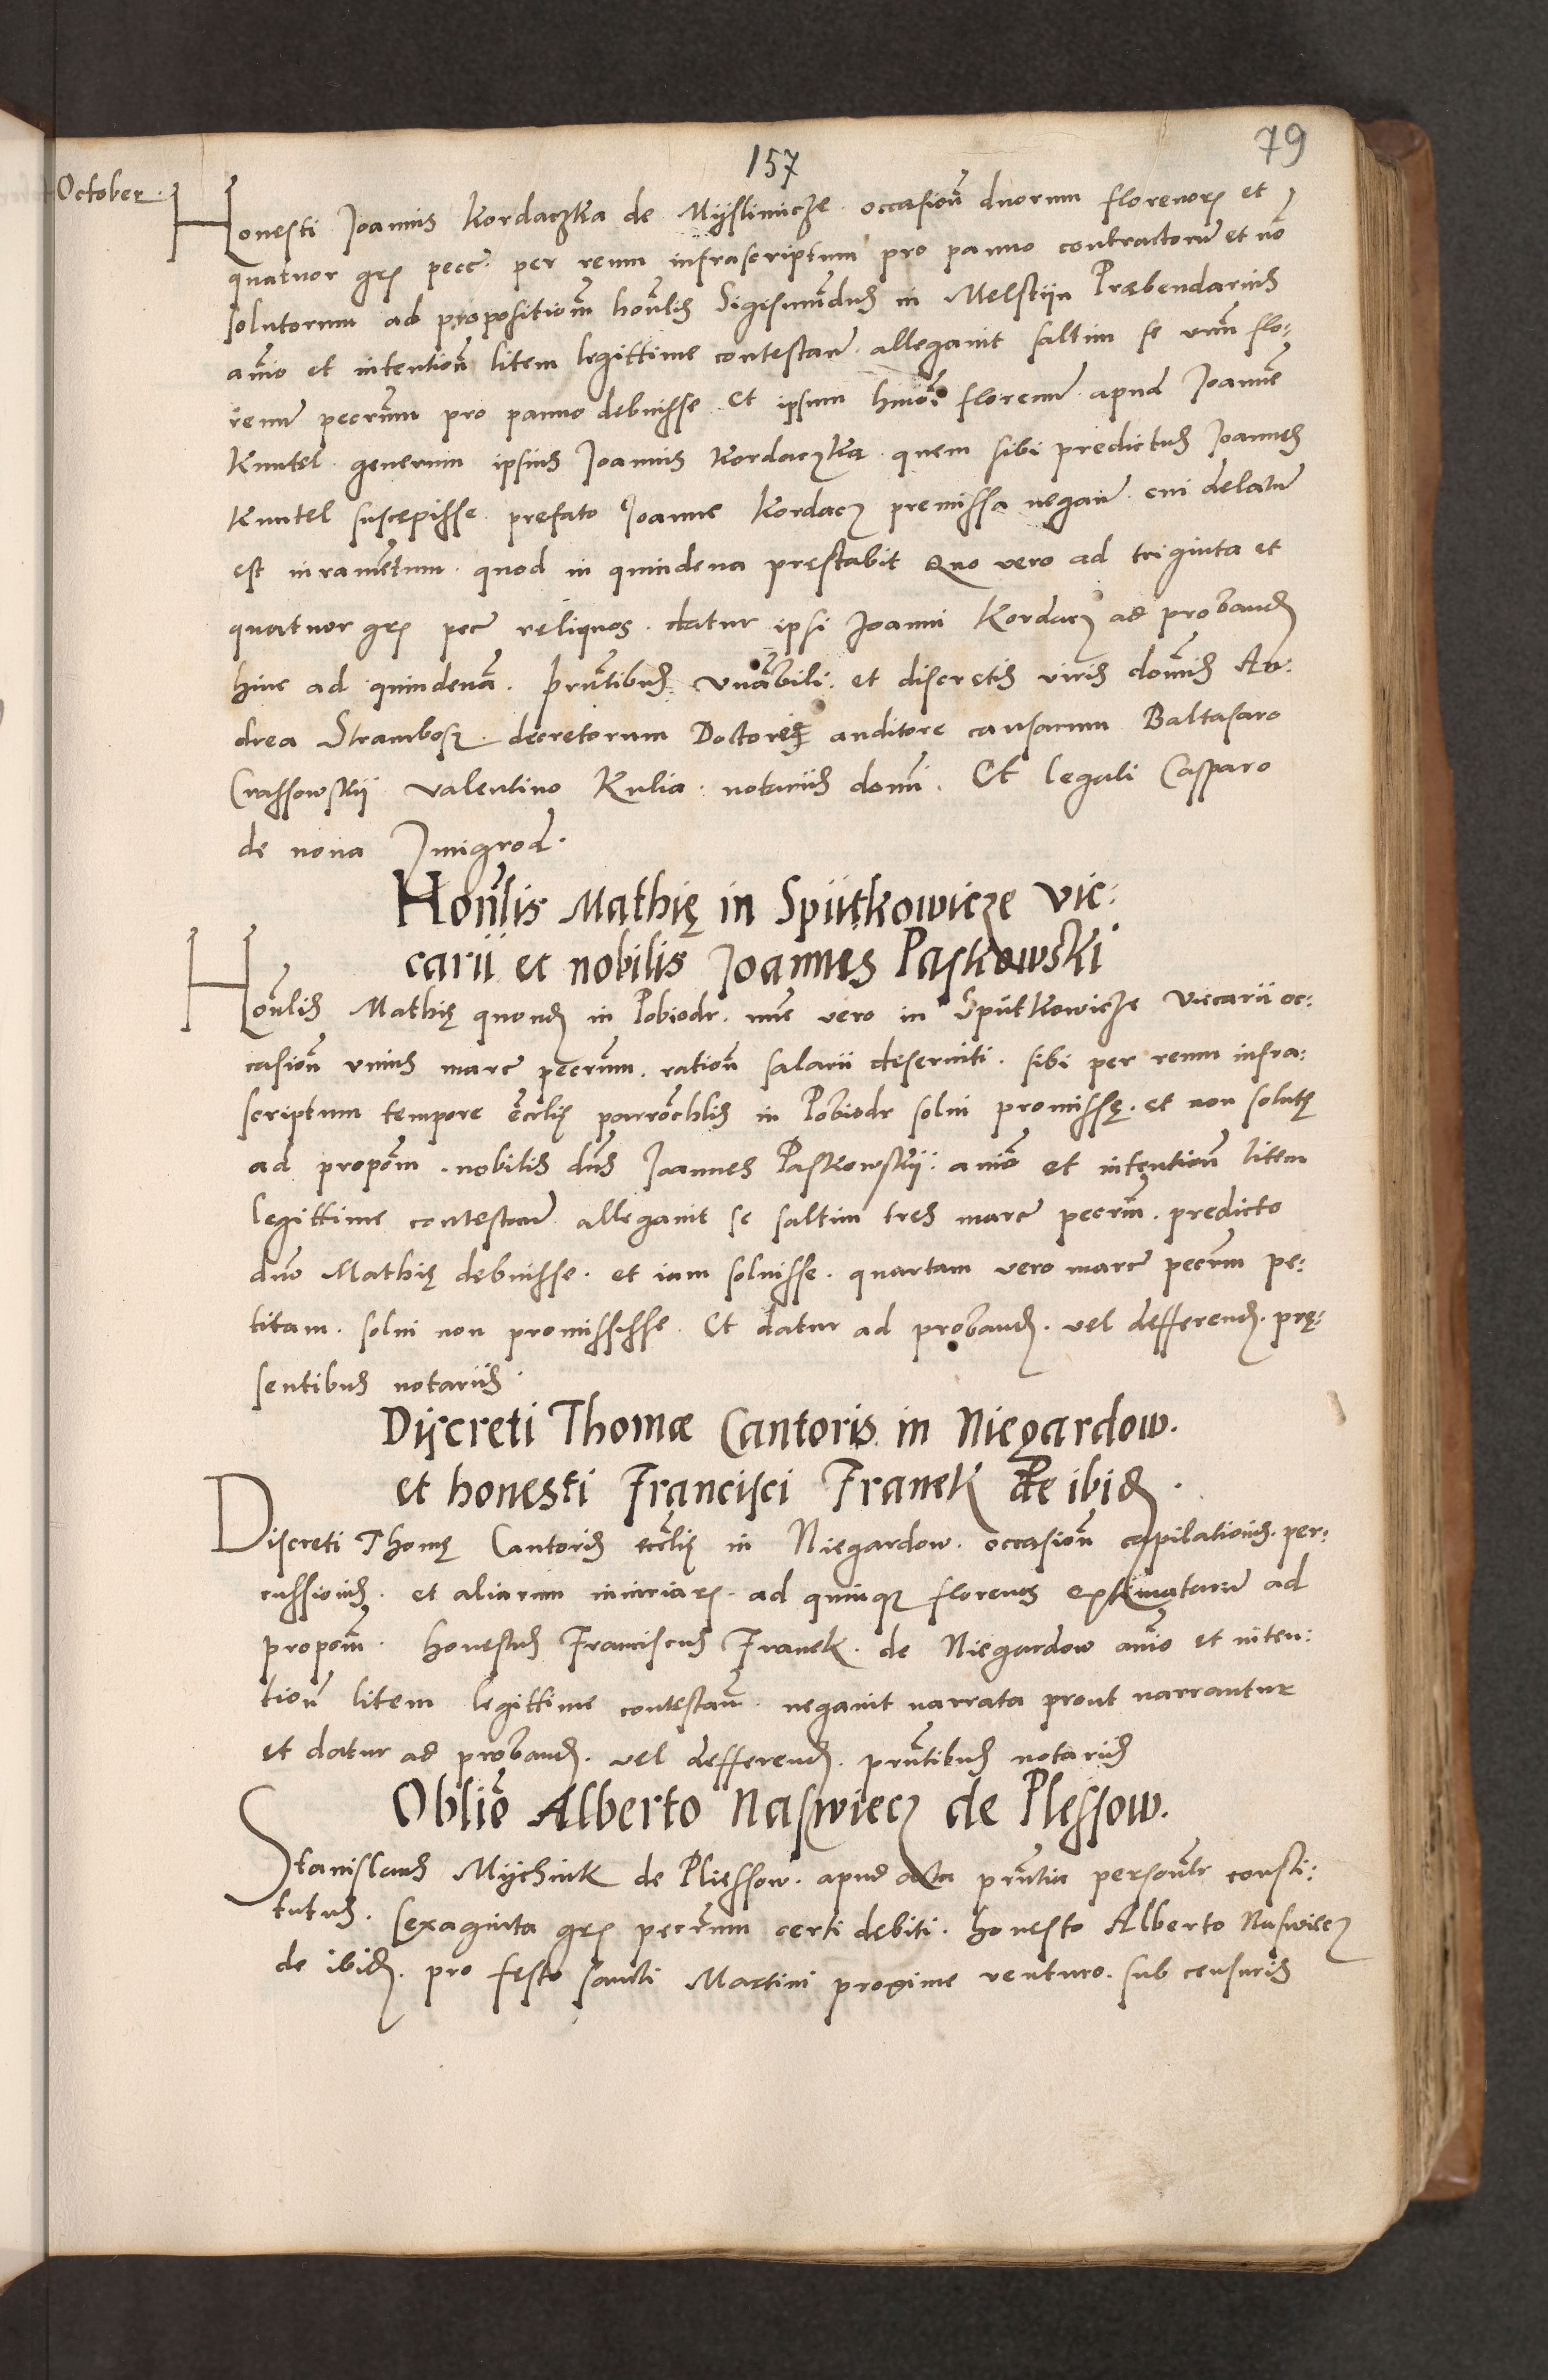 157
79
October.
Honesti Joannis Kordaczka de Myslimicze occasioñ duorum florenorꝝ et
quatuor grꝭ pecc̃. per reum infrascriptum pro panno contractorũ et nõ
solutorum ad propositioñm hoñlis Sigismũdus in Melstijn Præbendarius
añio et intentioñ litem legittime contestañ. allegauit saltim se vnũ flo:
renũ pecc̃rum pro panno debuisse et ipsum hmõi florenũ apud Joannẽ
Knutel generum ipsius Joannis Kordaczka quem sibi predictus Joannes
Knutel suscepisse. prefato Joanne Kordacz premissa negañ. cui delatũ
est iuramẽtum. quod in quindena pręstabit Quo vero ad triginta et
quatuor grꝭ pecc̃ reliquos. datur ipsi Joanni Kordacz ad probandꝭ
hinc ad quindenã. pñtibus vñabili. et discretis viris dominis An:
drea Strambosz. decretorum Doctore auditore causarum Baltasaro
Crassowskij Valentino Kulia. notariis domi. Et legali Casparo
de noua Jmigrod.
Hoñlis Mathię in Spijtkowicze vic:
carii et nobilis Joannes Paskowski
Hoñlis Mathię quondꝭ in Pobiedr. nũc vero in Spijtkowicze Viccarii oc:
casioñ vnius marc̃ pecc̃rum. ratioñ salarii deseruiti. sibi per reum infra:
scriptum tempore ec̃clię parrõchlis in Pobiedr solui promissę. et non solutę
ad propõm. nobilis dñs Joannes Paskowskij. animo et intentioñ litem
legittime contestañ allegauit se saltim tres marc̃ pecc̃rũ. predicto
dño Mathię debuisse. et iam soluisse. quartam vero marc̃ pecc̃rũ pe:
titam. solui non promisisse. Et datur ad probandꝭ. vel defferendꝭ. prę:
sentibus notariis.
Discreti Thomæ Cantoris in Niegardow.
et honesti Francisci Franek de ibidꝭ.
Discreti Thomę Cantoris ec̃clię in Niegardow. occasioñ capilationis. per:
cussionis. et aliarum iniuriarꝝ. ad quinqꝫ florenos extimatarũ ad
propõm. honestus Franciscus Franek. de Niegardow añio et inten:
tioñ litem legittime contestañ. negauit narrata prout narrantur
et datur ad probandꝭ. vel defferendꝭ. pñtibus notariis
Obliõ Alberto Naswiecz de Plessow.
Stanislaus Mychnik de Pliessow. apud acta pñtia personlr̃ consti:
tutus. sexaginta grꝭ pecc̃rum certi debiti. honesto Alberto Naswiecz
de ibidꝭ. pro festo sancti Martini proxime venturo. sub censuris